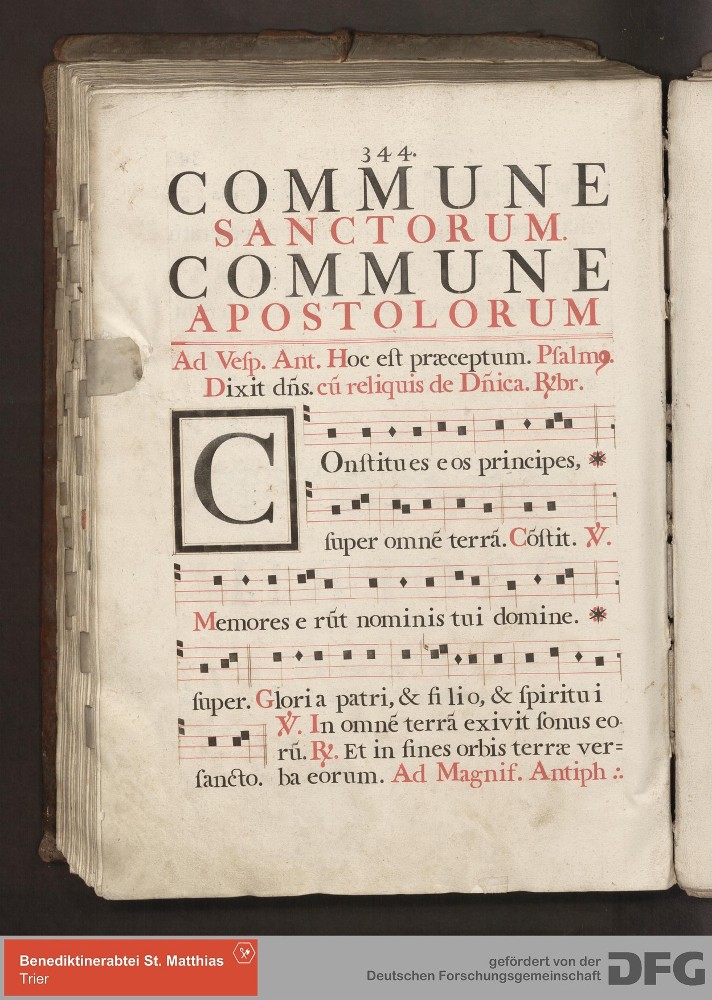 344.
COMMUNE
SANCTORUM.
COMMUNE
APOSTOLORUM
Ad Veſp. Ant. Hoc eſt præceptum. Pſalmꝯ.
Dixit dn̄s. cū reliquis de Dn̄ica. ℟br.
COnſtitues eos principes, *
ſuper omnē terrā. Cōſtit. ℣.
Memores erūt nominis tui domine. *
ſuper. Gloria patri, & filio, & ſpiritui
ſancto.
℣. In omnē terrā exivit ſonus eo-
rū. ℟. Et in fines orbis terræ ver=
ba eorum. Ad Magnif. Antiph ∴
Benediktinerabtei St. Matthias
Trier
gefördert von der
Deutschen Forschungsgemeinschaft
DFG